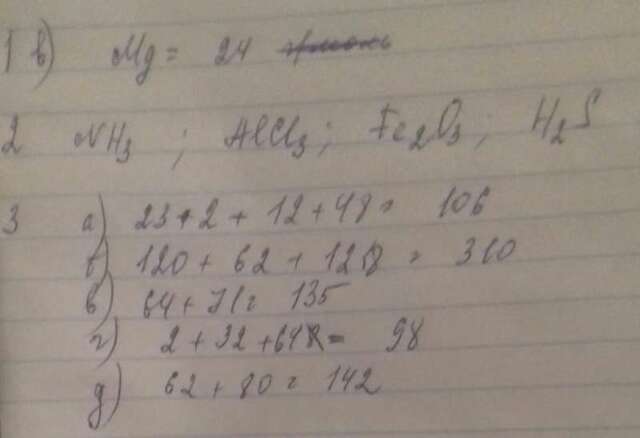 1 в) Mg = 24
2 NH3 ; AlCl3 ; Fe2O3 ; H2S
3 а) 23·2 + 12 + 48 = 106
б) 120 + 62 + 128 = 310
в) 64 + 71 = 135
г) 2 + 32 + 64 = 98
д) 62 + 80 = 142